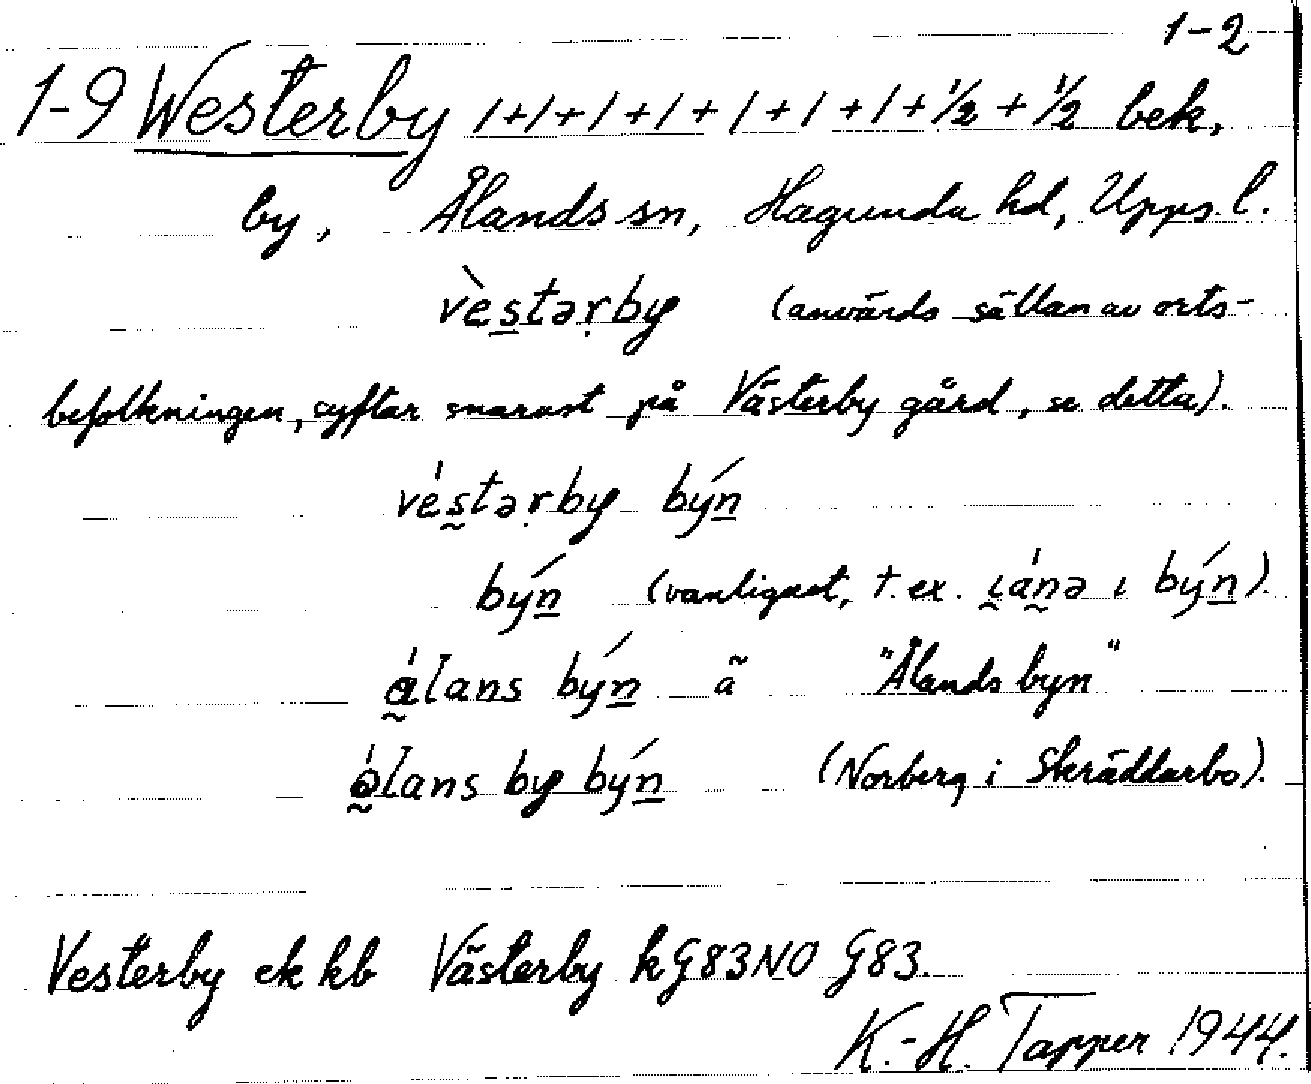 1-2
1-9 Westerby 1+1+1+1+1+1+1+½+½ bek,
by, Ålands sn, Hagunda hd, Upps. l.
vès̲tər̩by (används sällan av orts-
befolkningen, syftar snarast på Västerby gård, se detta).
vés̰tər̩by býn̲
býn̲ (vanligast, t. ex. ɩ̰án̰ə ɩ býn̲).
á̰lans býn̲ ã "Ålands byn"
ə̰́lans by býn̲ (Norberg i Skräddarbo).
Vesterby ek kb Västerby k G83NO G83.
K.-H. Tapper 1944.